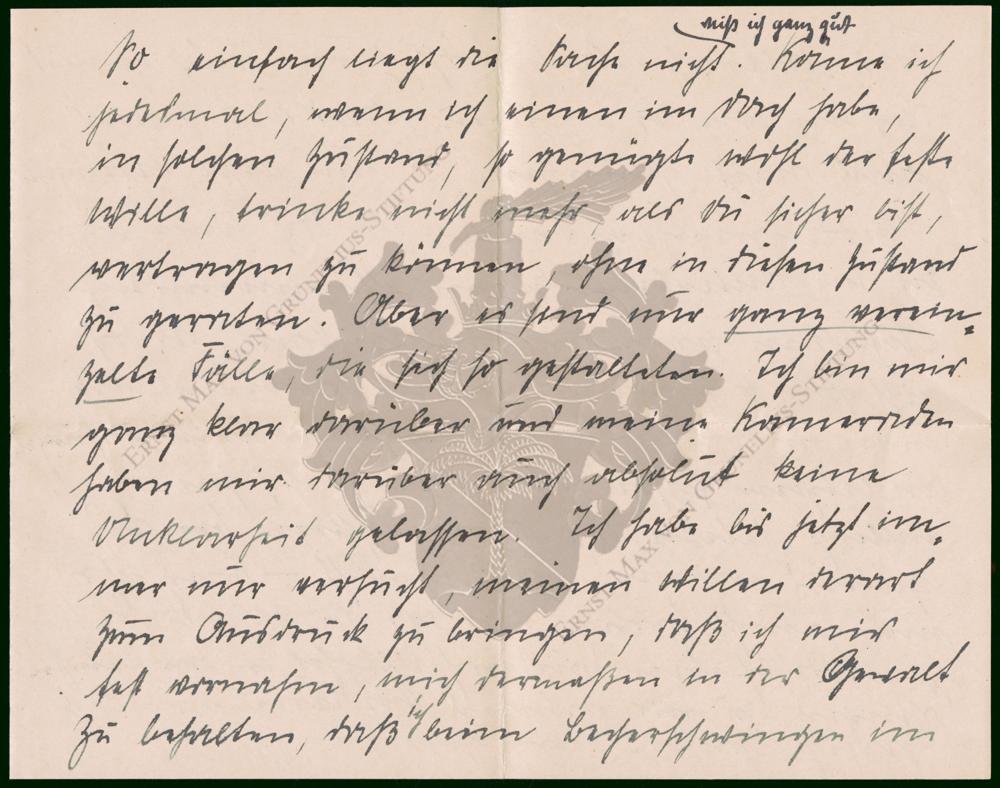 weiß ich ganz gut
So einfach liegt die Sache nicht. Käme ich
jedesmal, wenn ich einen im Dach habe,
in solchen Zustand, so genügte wohl der feste
Wille, trinke nicht mehr, als du sicher bist,
vertragen zu können, ohne in diesen Zustand
zu geraten. Aber es sind nur ganz verein-
zelte Fälle, die sich so gestalteten. Ich bin mir
ganz klar darüber und meine Kameraden
haben mir darüber auch absolut keine
Unklarheit gelassen. Ich habe bis jetzt im-
mer nur versucht, meinen Willen derart
zum Ausdruck zu bringen, daß ich mir
fest vornahm, mich dermaßen in der Gewalt
zu behalten, daß ich beim Becherschwingen im
Ernst Max von Grunelius-Stiftung
Ernst Max von Grunelius-Stiftung